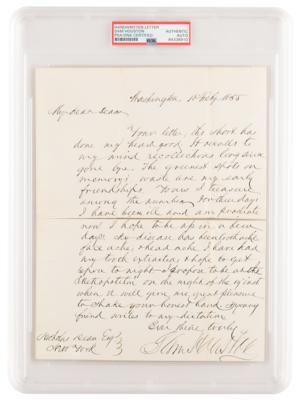 HANDWRITTEN LETTER
SAM HOUSTON
PSA/DNA CERTIFIED
PSA
AUTHENTIC
AUTO
Washington 10 Feby 1855
My dear Dean
Your letter, tho short has
done my heart good. It recalls to
my mind recollections long since
gone by. The greenest spots on
memory's waste are my early
friendships. Yours I treasure
among the number. For three days
I have been ill and am prostrate
now I hope to be up in a few
days. My disease has been tooth ache
face ache & head ache. I have had
my tooth extracted & hope to get
repose to night. I propose to be at the
Metropolitan on the night of the
when it will give me great pleasure
to shake your honest hand. A young
friend writes to my dictation
Ever thine truly
Sam Houston
Nicholas Dean Esqr
New York